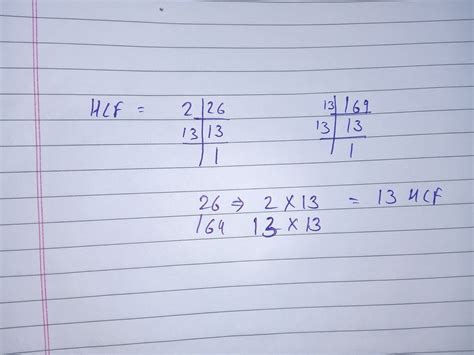 HCF = 2 | 26 13 | 169
13 | 13 13 | 13
| 1 | 1
26 ⇒ 2 × 13 = 13 HCF
164 13 × 13